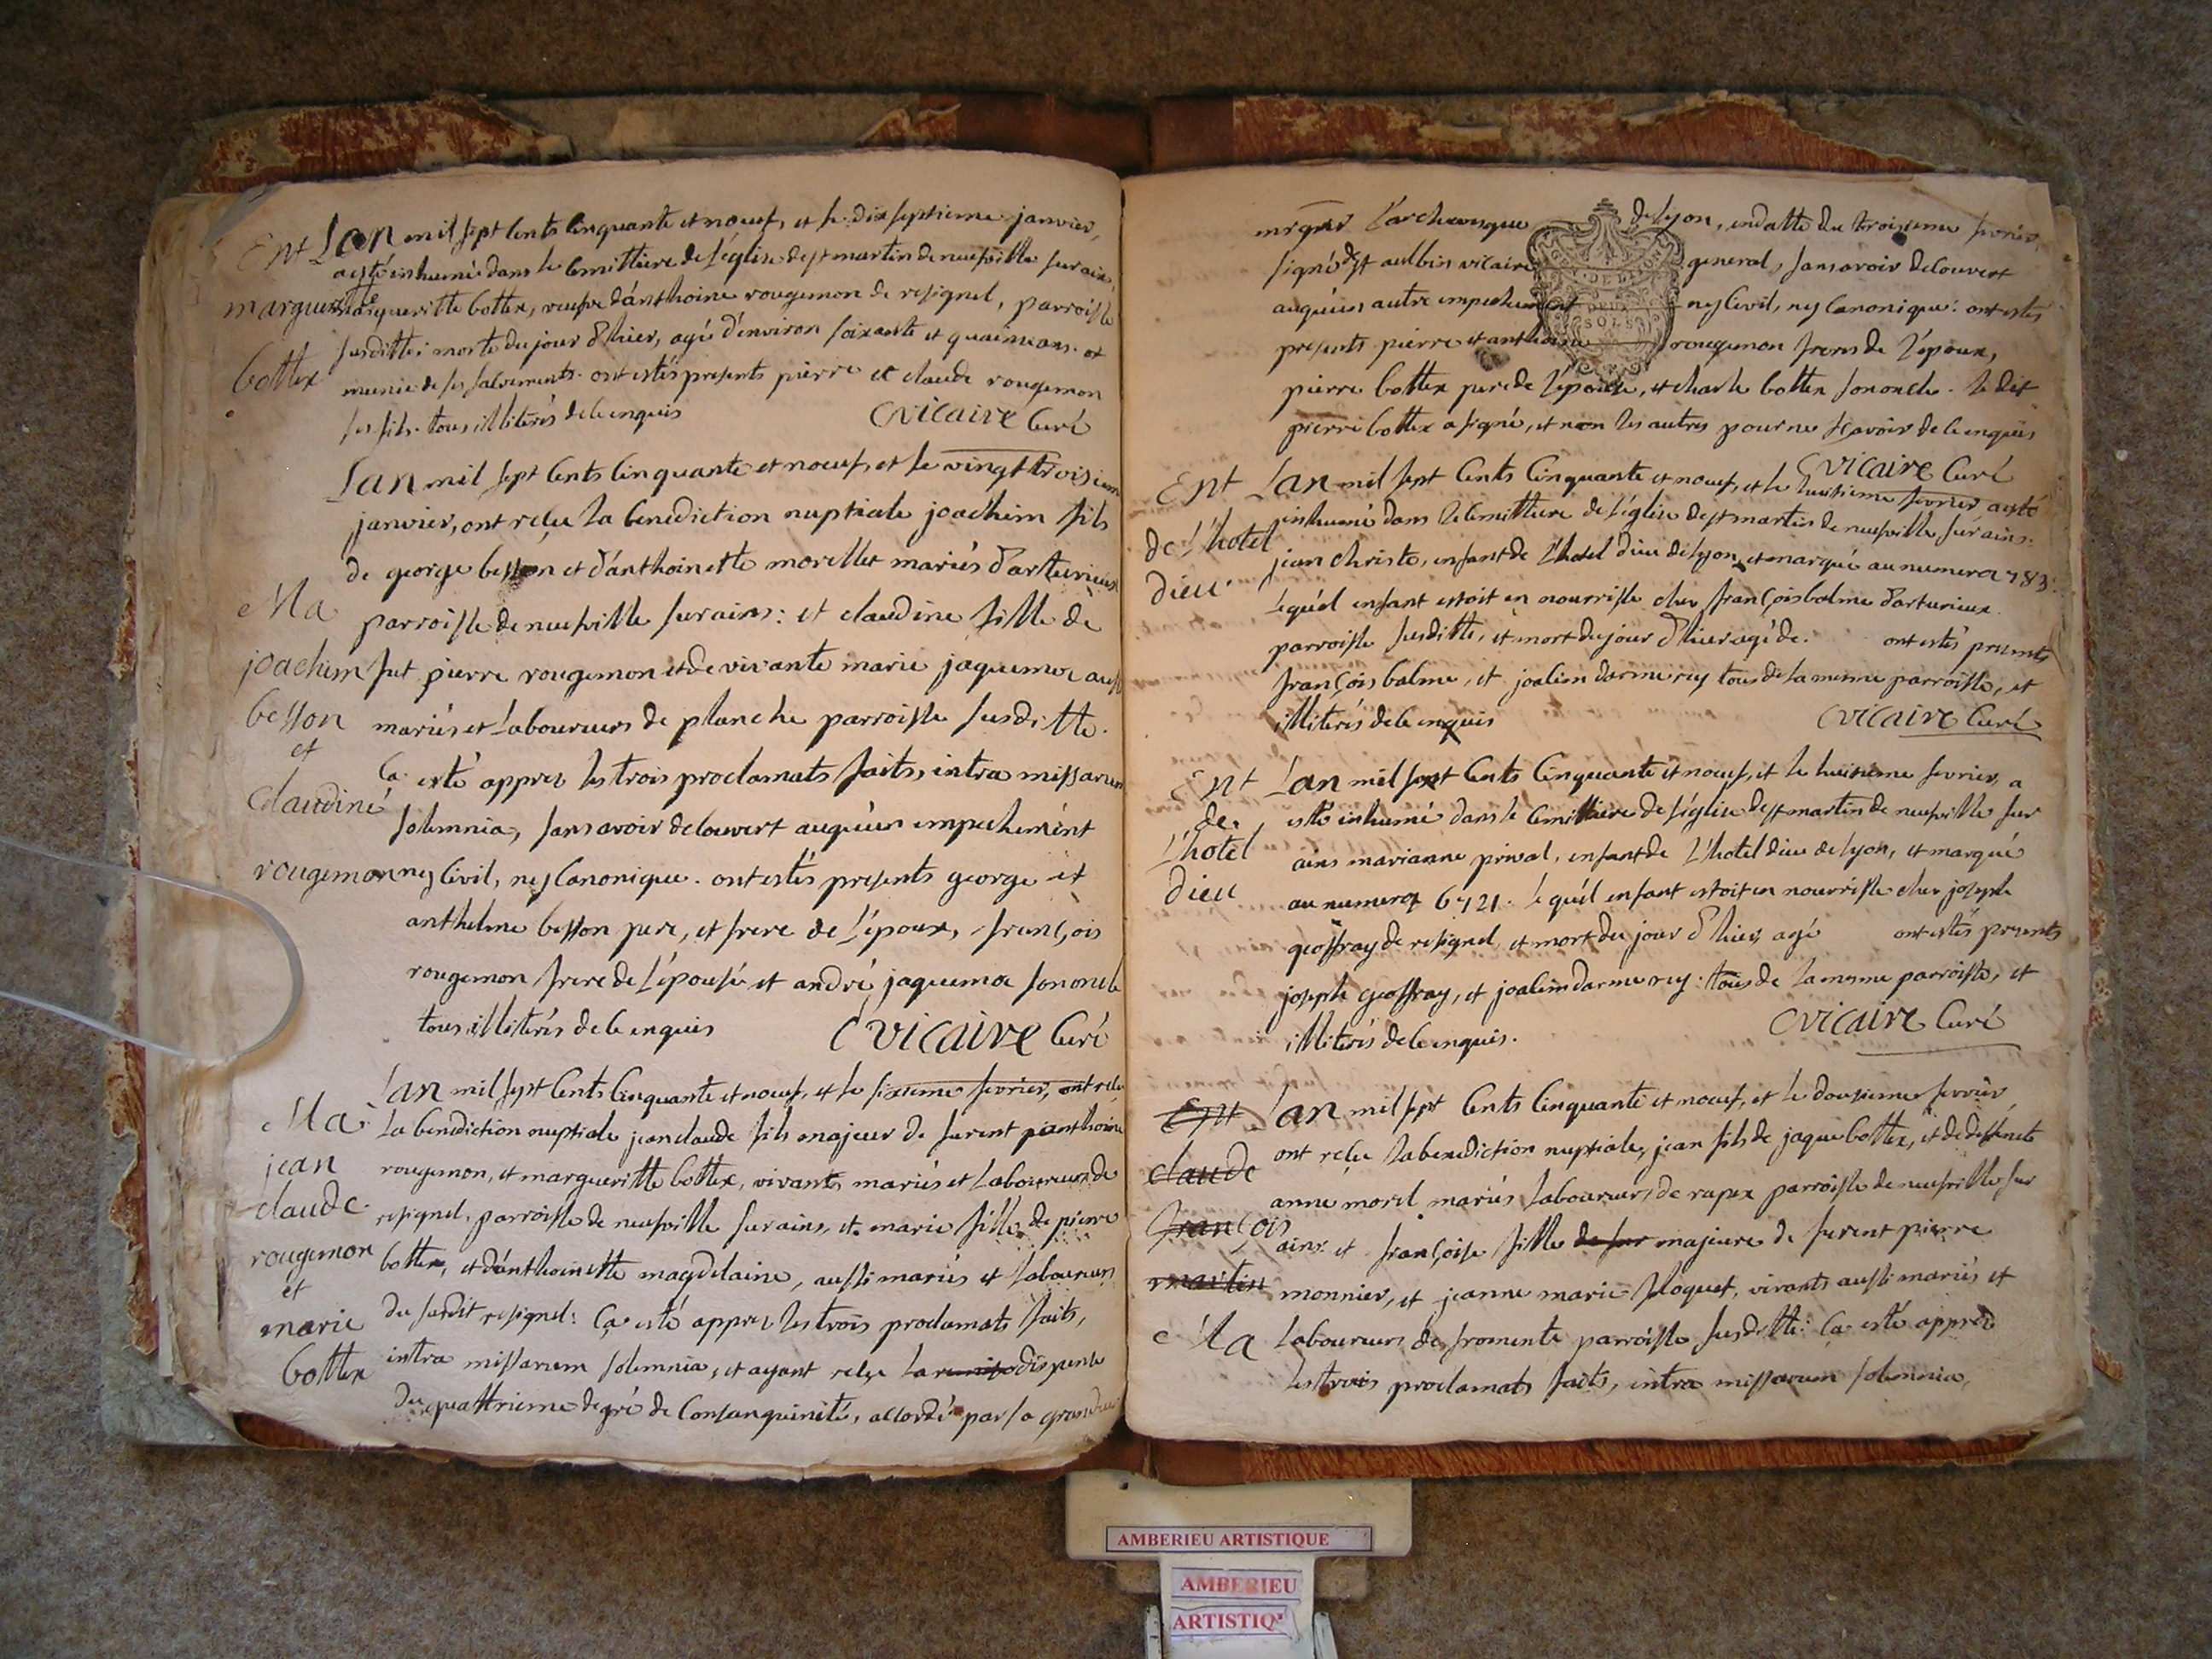 Ent
margueritte
bottex
Lan mil sept cents cinquante et noeuf, et le dix septieme janvier,
a esté inhumée dans le cemittiere de l'église de st martin de neufville sur ains,
margueritte bottex, veufve d'anthoine rougemon de resignel, parroisse
susditte: morte du jour d'hier, agée d'environ soixante et quainze ans. et
munie de ses sacrements. ont estés presents pierre et claude rougemon
ses fils. tous illiterés de ce enquis
Cvicaire Curé
Ma
joachim
besson
et
claudine
rougemon
Lan mil sept cents cinquante et noeuf, et le vingt troisiem
janvier, ont reçeu la benediction nuptiale joachim fils
de george besson et d'anthoinette morellet mariés d'arturieux
parroisse de neufville sur ains: et claudine fille de
fut pierre rougemon et de vivante marie jaquemoc aussi
mariés et laboureurs de planche parroisse susditte.
Ca esté appres les trois proclamats faits, intra missarum
solemnia, sans avoir decouvert auquun empechement
ny Civil, ny Canonique. ont estés presents george et
anthelme besson pere, et frere de l'époux, françois
rougemon frere de l'épouse et andré jaquemoc son oncle
tous illiterés de ce enquis
Cvicaire Curé
Ma
jean
claude
rougemon
et
marie
bottex
Lan mil sept cents cinquante et noeuf, et le sixieme fevrier, ont reçeu
la benediction nuptiale jean claude fils majeur de furent anthoine
rougemon, et margueritte bottex, vivants mariés et laboureurs de
resignel, parroisse de neufville sur ains, et marie fille de pierre
bottex, et d'anthoinette magdelaine, aussi mariés et laboureurs
du susdit resignel: Ca esté appres les trois proclamats faits,
intra missarum solemnia, et ayant reçeu la dispense
du quattrieme degré de Consanguinité, accordée par sa grandeur
mrgnr l'archevesque de lyon, en datte du troisieme fevrier
signé st aulbin vicaire general, sans avoir decouvert
auquun autre empechement ny Civil, ny Canonique: ont estés
presents pierre et anthoine rougemon freres de l'époux,
pierre bottex pere de l'épouse, et charle bottex son oncle. le dit
pierre bottex a signé, et non les autres pour ne sçavoir de ce enquis
Cvicaire Curé
DEUX
SOLS
Ent
de l'hotel
dieu
Lan mil sept cents cinquante et noeuf, et le huitieme fevrier, a esté
inhumé dans le cemittiere de l'église de st martin de neufville sur ains.
jean christe, enfant de l'hotel dieu de lyon, et marqué au numero 783.
lequel enfant estoit en nourrisse chez françois balme d'arturieux
parroisse susditte, et mort du jour d'hier agé de. ont estés presents
françois balme, et joachim darmerey tous de la mesme parroisse, et
illiterés de ce enquis
Cvicaire Curé
Ent
de
l'hotel
dieu
Lan mil sept cents cinquante et noeuf, et le huitieme fevrier, a
esté inhumé dans le cemittiere de l'église de st martin de neufville sur
ains marianne prival, enfant de l'hotel dieu de lyon, et marqué
au numero 6421. lequel enfant estoit en nourrisse chez joseph
geoffray de resignel, et mort du jour d'hier, agé ont estés presents
joseph geoffray, et joachim darmerey: tous de la mesme parroisse, et
illiterés de ce enquis.
Cvicaire Curé
Ent
claude
françois
martin
Ma
Lan mil sept cents cinquante et noeuf, et le dousieme fevrier
ont reçeu la benediction nuptiale, jean fils de jaque bottex, et de deffuncte
anne morel mariés laboureurs de rapex parroisse de neufville sur
ains: et françoise fille de fur majeure de furent pierre
monnier, et jeanne marie ploquet, vivants aussi mariés et
laboureurs de fromente parroisse susditte: Ca esté appres
les trois proclamats faits, intra missarum solemnia,
AMBERIEU ARTISTIQUE
AMBERIEU
ARTISTIQ